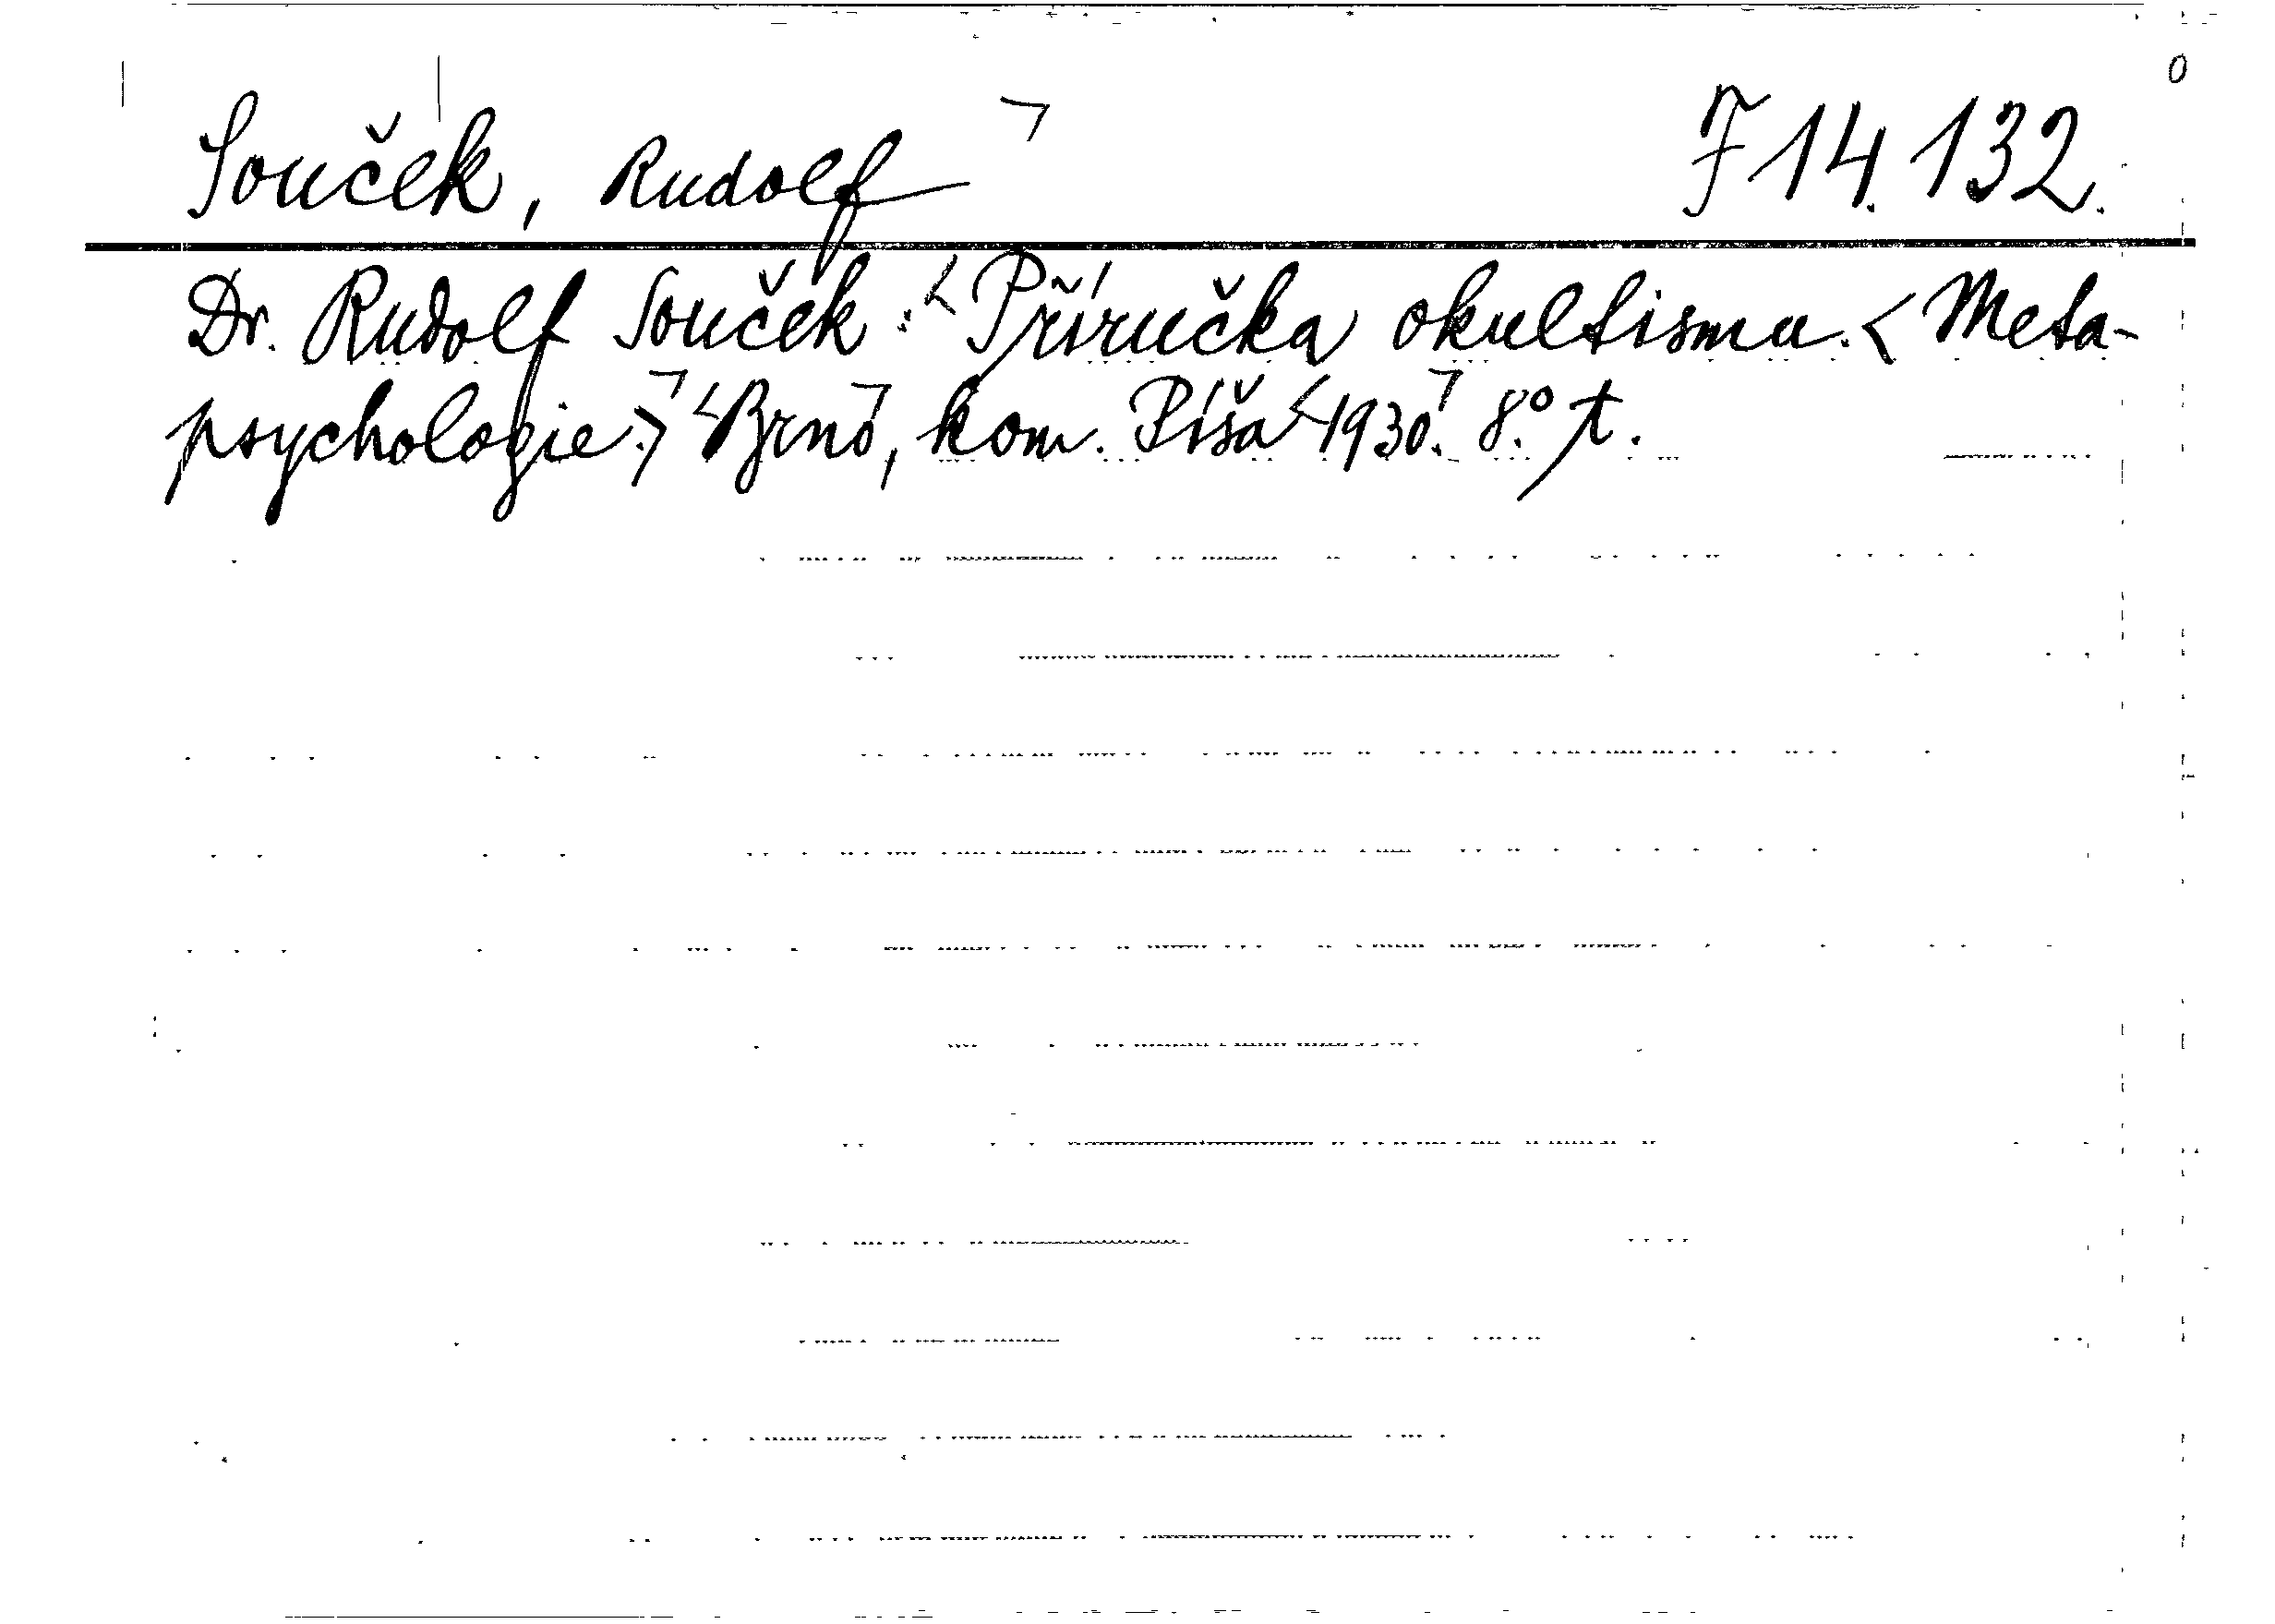 Souček, Rudolf ㄱ F 14.132.
Dr. Rudolf Souček: <Příručka okultismu. <Meta-
psychologie.>ㄱ <Brno,ㄱ kom. Píša <1930.ㄱ 8.° t.